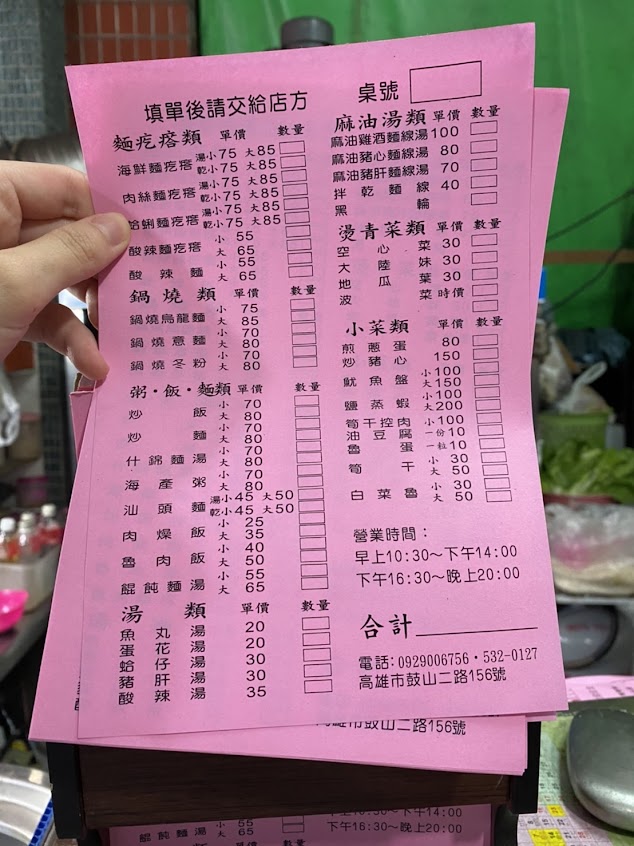 填單後請交給店方
桌號
麵疙瘩類 單價 數量
海鮮麵疙瘩 湯小75 大85
乾小75 大85
肉絲麵疙瘩 湯小75 大85
乾小75 大85
蛤蜊麵疙瘩 湯小75 大85
乾小75 大85
酸辣麵疙瘩 小 55
大 65
酸辣麵 小 55
大 65
鍋燒類 單價 數量
鍋燒烏龍麵 小 75
大 85
鍋燒意麵 小 70
大 80
鍋燒冬粉 小 70
大 80
粥・飯・麵類 單價 數量
炒飯 小 70
大 80
炒麵 小 70
大 80
什錦麵湯 小 70
大 80
海產粥 小 70
大 80
汕頭麵 湯小45 大50
乾小45 大50
肉燥飯 小 25
大 35
魯肉飯 小 40
大 50
餛飩麵湯 小 55
大 65
湯類 單價 數量
魚丸湯 20
蛋花湯 20
蛤仔湯 30
豬肝湯 30
酸辣湯 35
麻油湯類 單價 數量
麻油雞酒麵線湯 100
麻油豬心麵線湯 80
麻油豬肝麵線湯 70
拌乾麵線 40
黑輪
燙青菜類 單價 數量
空心菜 30
大陸妹 30
地瓜葉 30
波菜 時價
小菜類 單價 數量
煎蔥蛋 80
炒豬心 150
魷魚盤 小100
大150
鹽蒸蝦 小100
大200
筍干控肉 小100
油豆腐 一份10
魯蛋 一粒10
筍干 小 30
大 50
白菜魯 小 30
大 50
營業時間：
早上10:30～下午14:00
下午16:30～晚上20:00
合計
電話：0929006756・532-0127
高雄市鼓山二路156號
高雄市鼓山二路156號
餛飩麵湯 小 55
大 65
早上10:30～下午14:00
下午16:30～晚上20:00